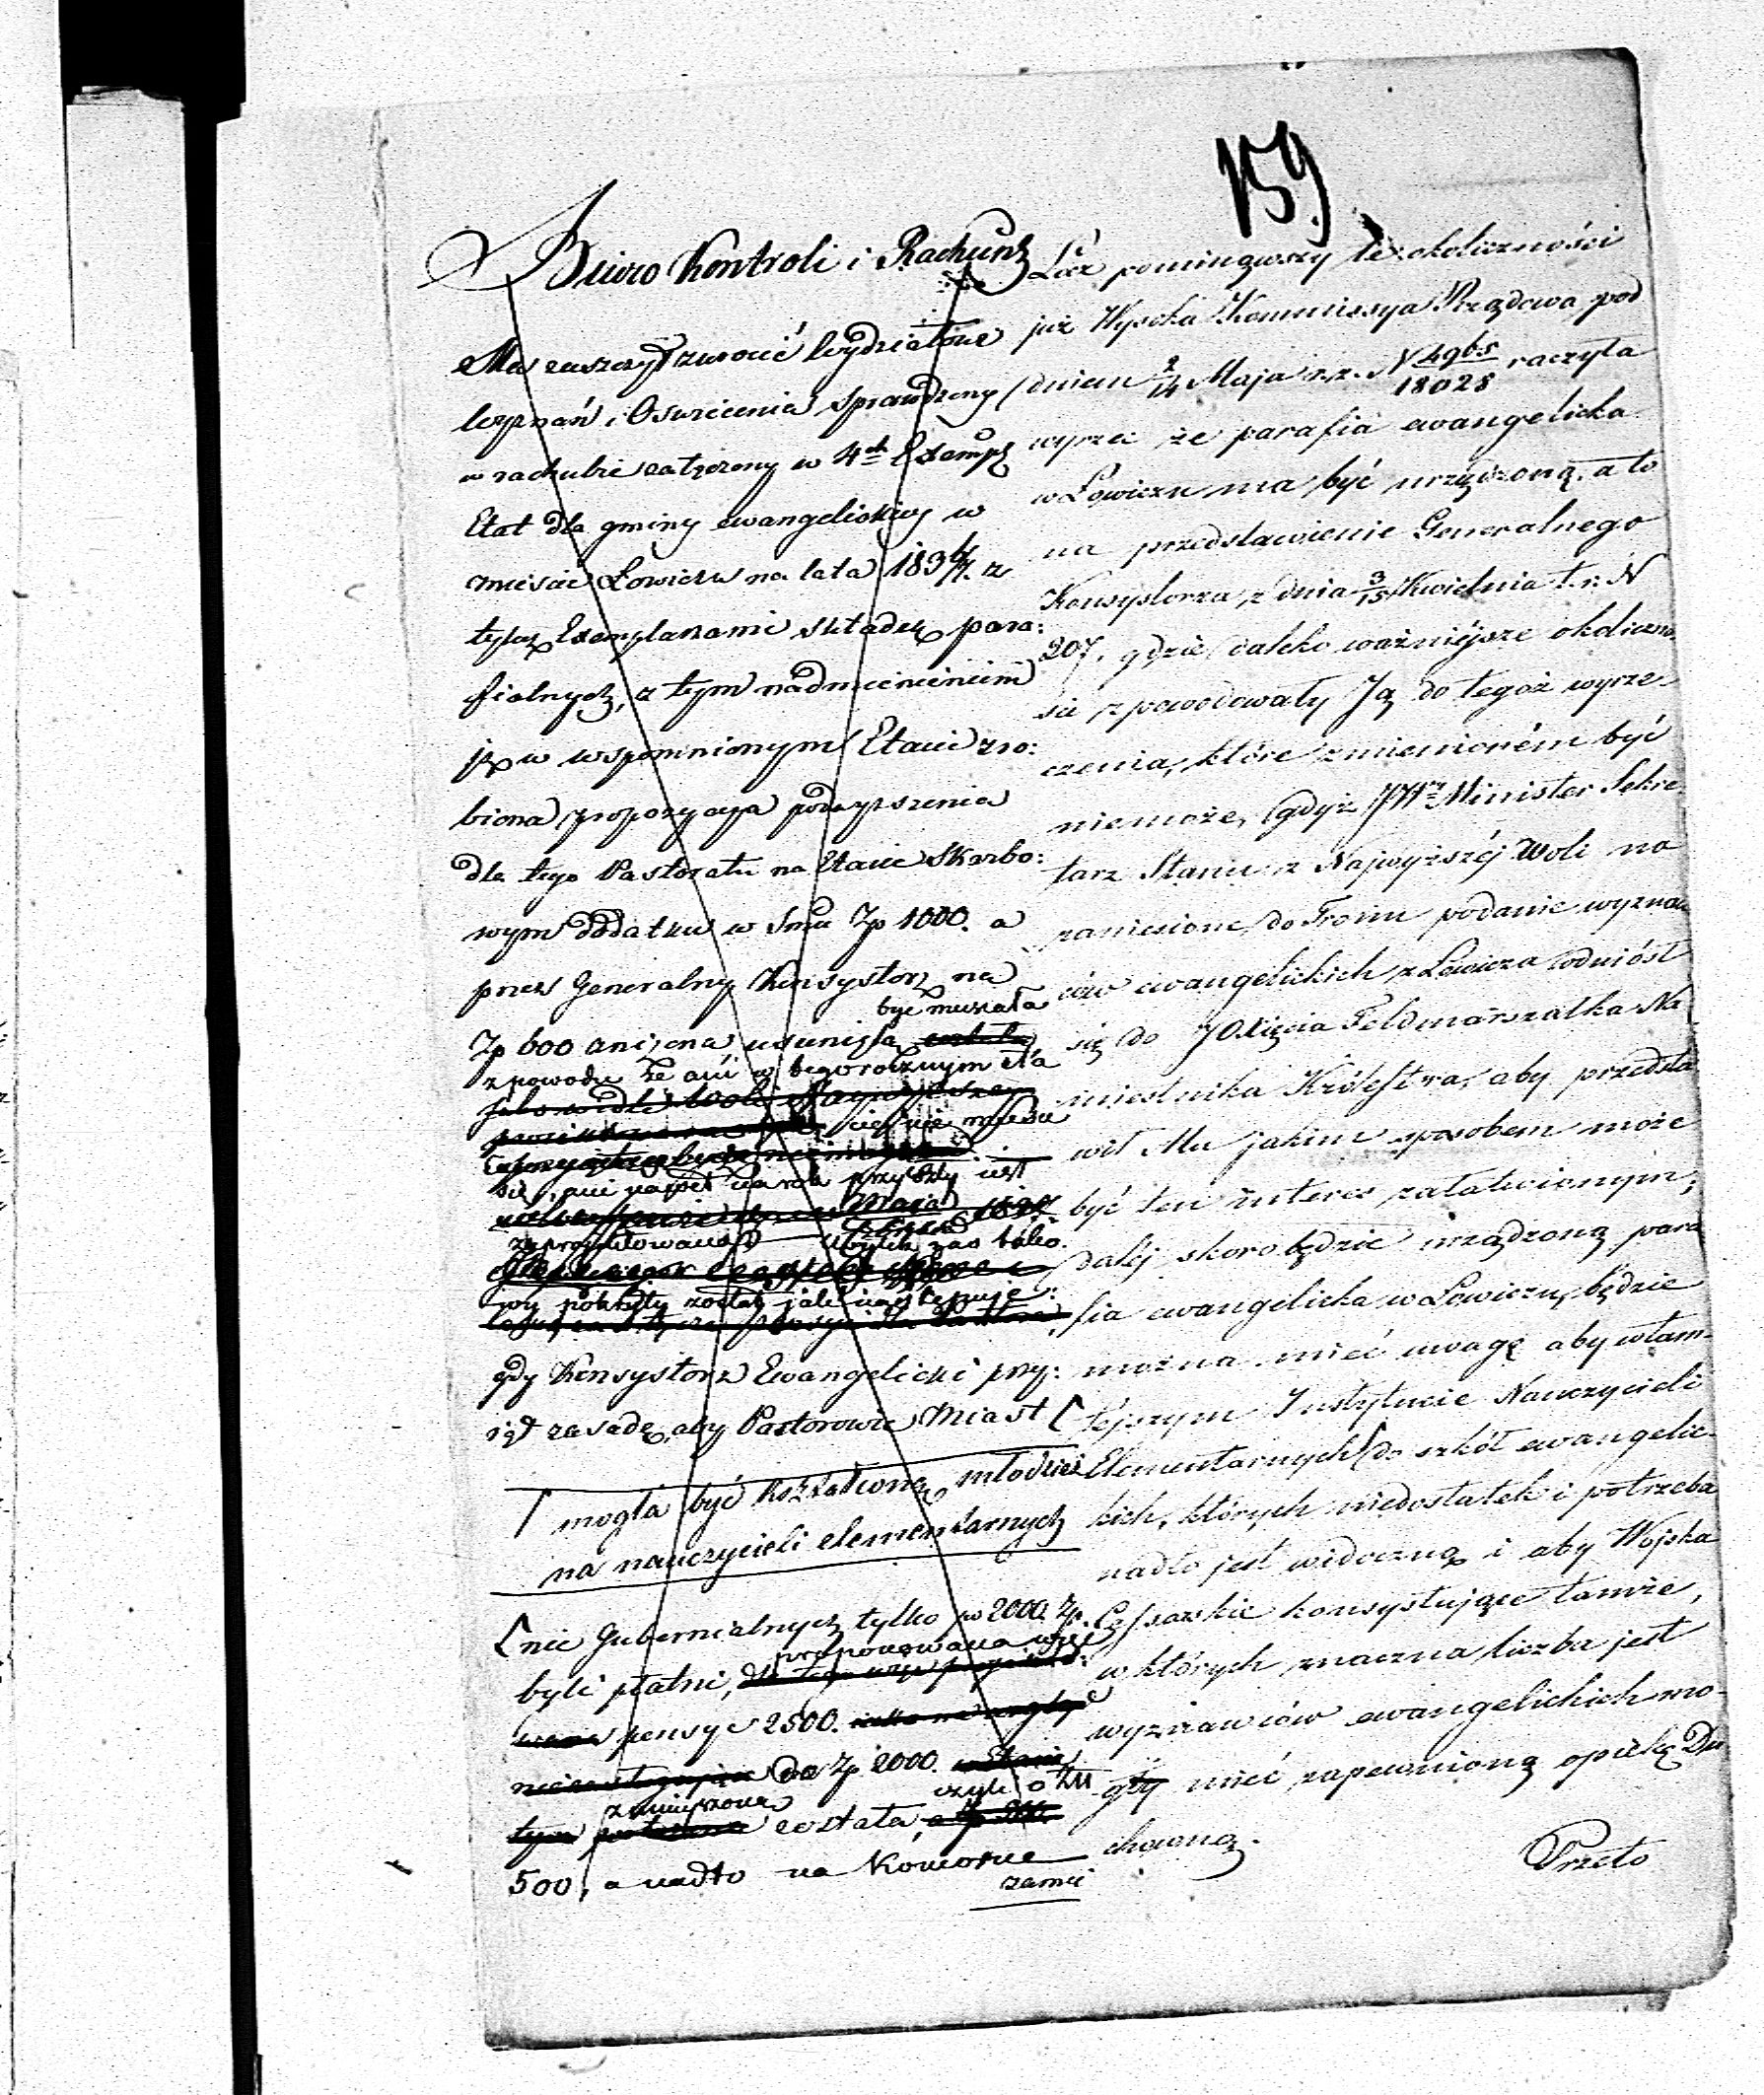 159
Biuro Kontroli i Rachunk
Ma zaszczyt zwrócić Wydziałowi
Wyznań i Oświecenia sprawdzony
w rachubie załączony w 4ch Exempl
Etat dla gminy ewangelickiey w
mieście Łowiczu na lata 183 z
tyluż Exemplarzami składek para:
fialnych, z tym nadmienieniem
iż w wspomnionym Etacie zro:
biona propozycya podwyższenia
dla tego Pastoratu na Etacie Skarbo:
wym dodatku w Smie Zp 1000. a
przez Generalny Konsystorz na
być musiała
Zp 600 oniżona usunięta została
z powodu że ani w tegorocznym eta
cie nie mieści
się, ani nawet na rok przyszły iest
zaprojektowana Ubytek zas tako
wy pokryty został jak następuje:
gdy Konsystorz Ewangelicki przy:
iął zasadę, aby Pastorowie Miast [
mogła być kształconą młodzież
na nauczycieli elementarnych
[ nie Gubernialnych tylko po 2000 Zp.
proponowana więc
byli płatni,
pensye 2500.
do Zp 2000.
zmnieyszona czyli o Zł
została,
500, a nadto na Komorne
zamie
Lecz pominąwszy te okoliczności
już Wysoka Kommissya Rządowa pod
dniem 2/14 Maja r.z. N 4965/18028 raczyła
wyrzec że parafia ewangelicka
w Łowiczu ma być urządzoną, a to
na przedstawienie Generalnego
Konsystorza z dnia 3/15 Kwietnia t.r. N
207, gdzie daleko ważniejsze okoliczno
sci spowodowały Ją do tegoż wyrze
czenia, które zmienioném być
niemoże, gdyż JW Minister Sekre
tarz Stanu z Najwyższéj Woli na
zaniesione do Tronu podanie wyznaw
ców ewangelickich z Łowicza odniósł
się do JO. Xięcia Feldmarszałka Na
miestnika Królestwa, aby przedsta
wił Mu jakim sposobem może
być ten interes załatwionym;
dalej skoro będzie urządzoną para
fia ewangelicka w Łowiczu, będzie
można mieć uwagę aby wtam
tejszym Instytucie Nauczycieli
Elementarnych [ do szkół ewangelic
kich, których niedostatek i potrzeba
nadto jest widoczną i aby Wojska
Cesarskie konsystujące tamże,
w których znaczna liczba jest
wyznawców ewangelickich mo
gły mieć zapewnioną opiekę Du
chowną.
Przeto